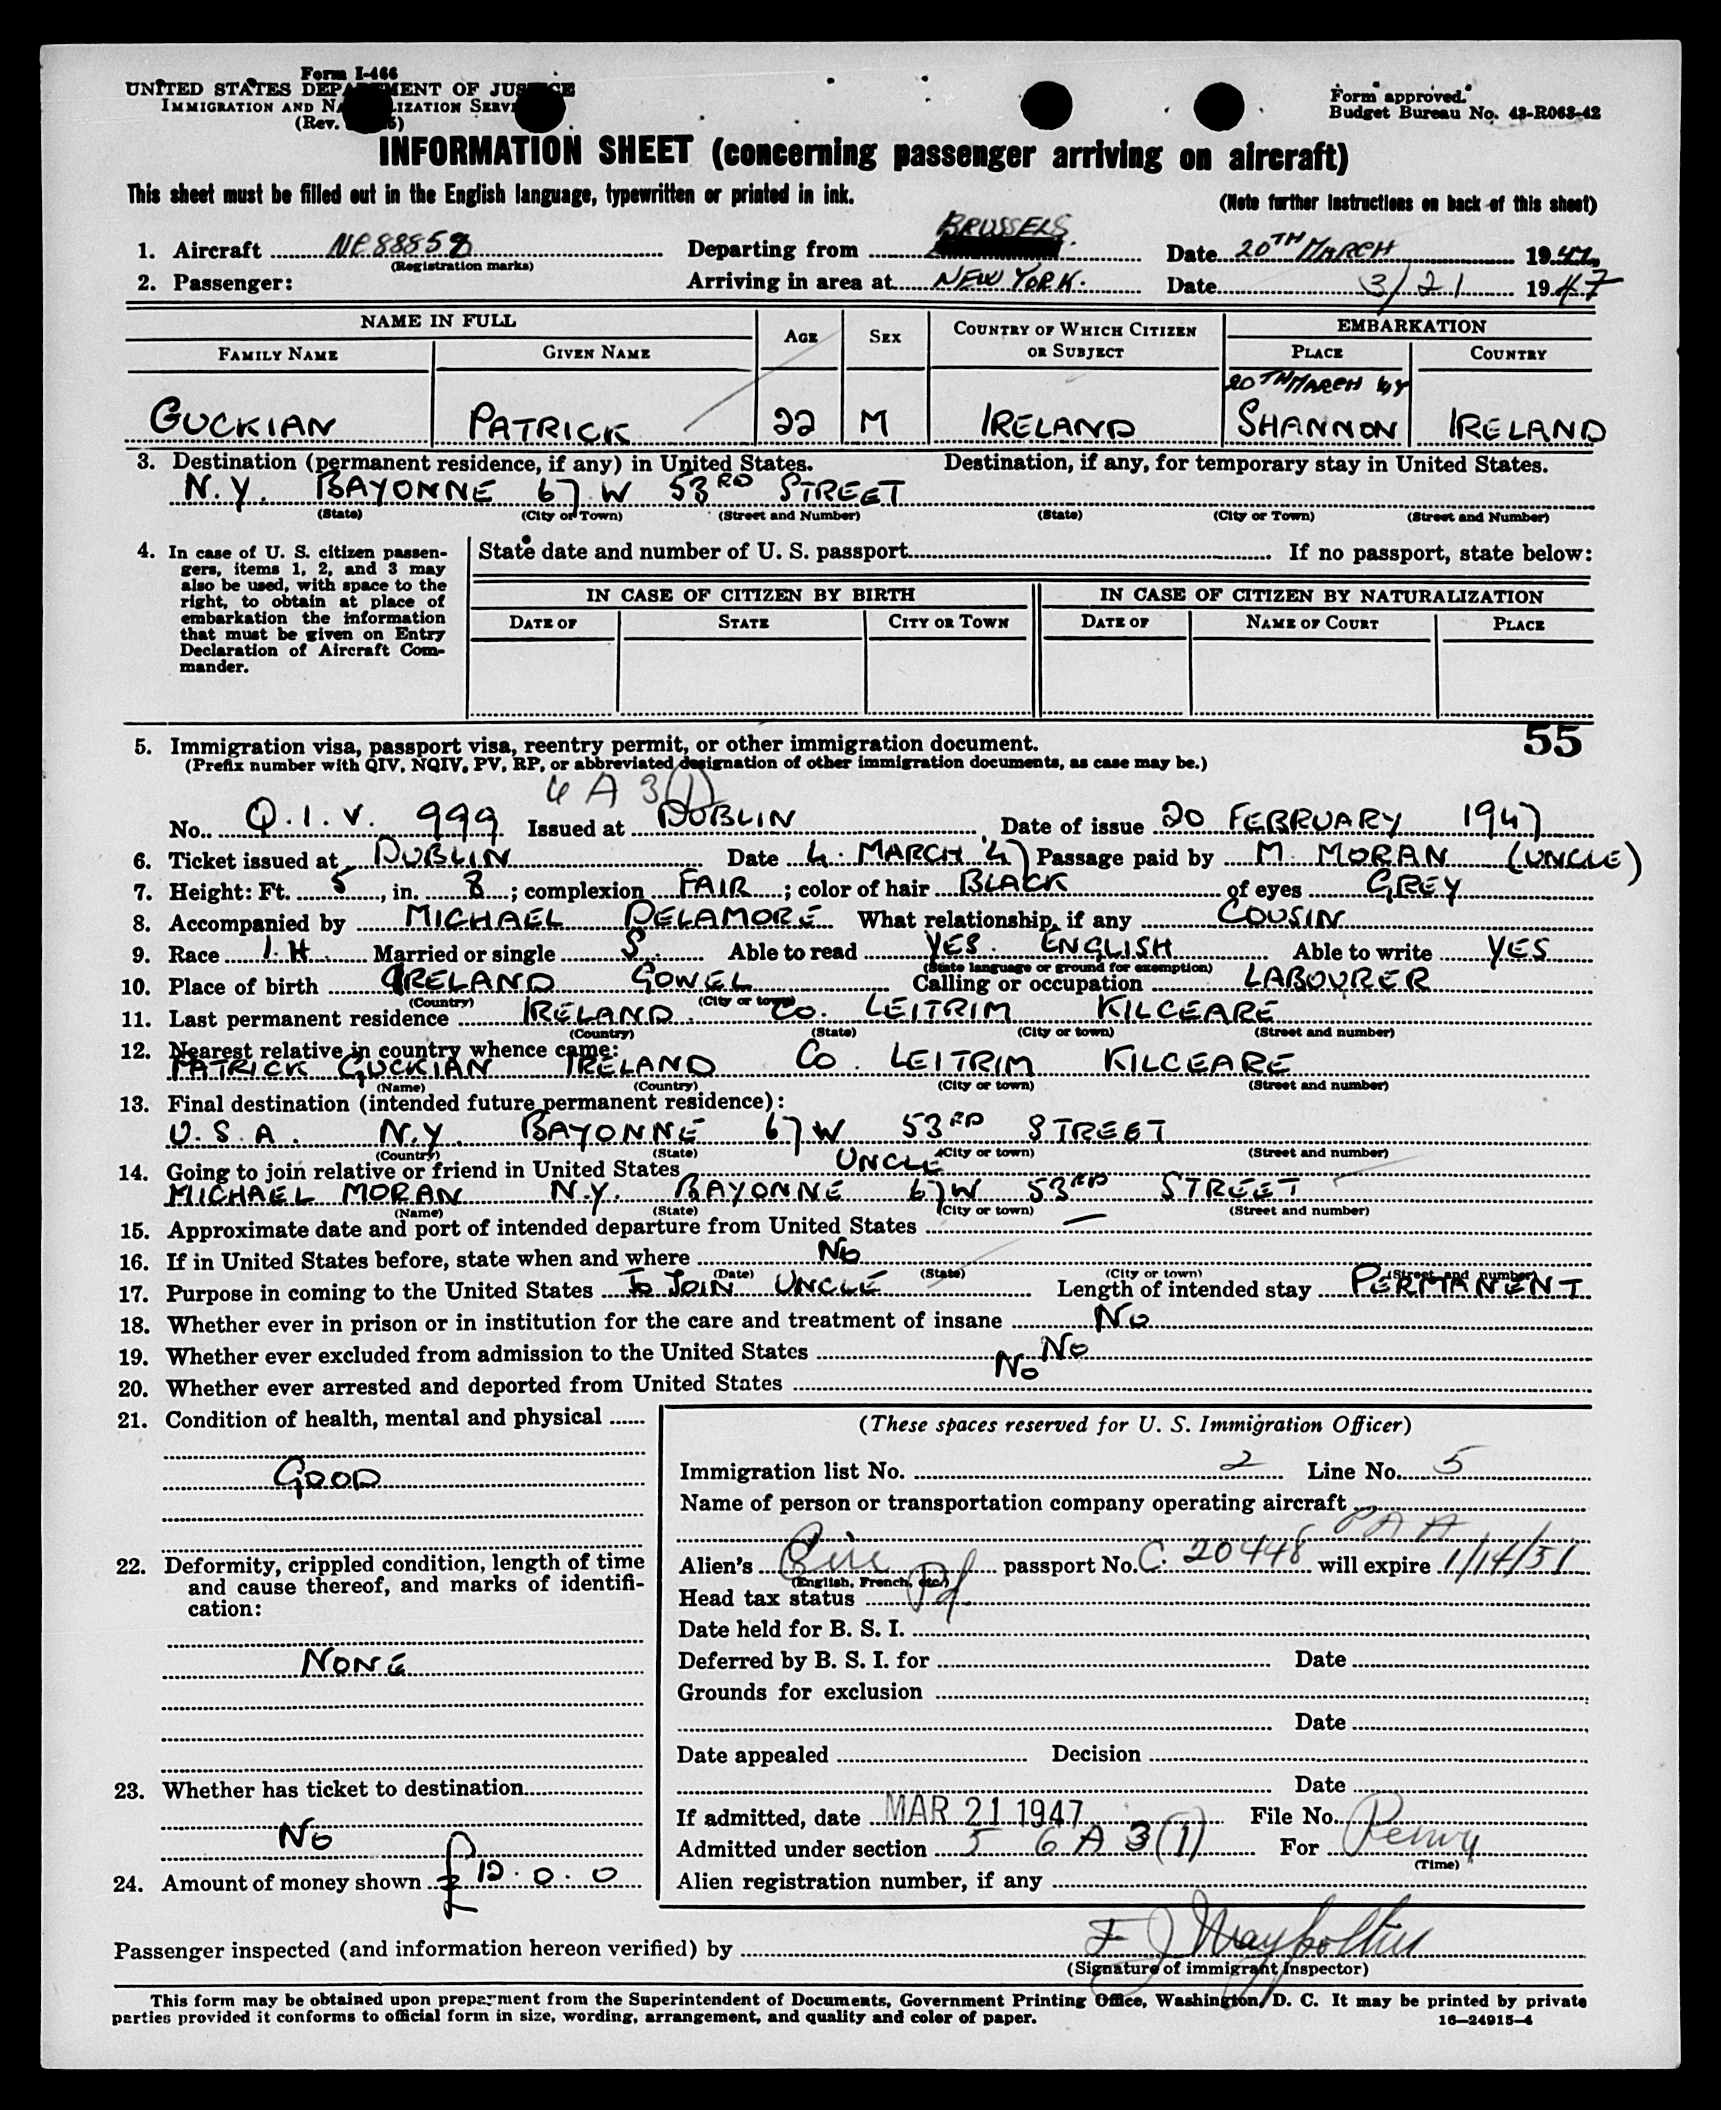 Form I-466
UNITED STATES DEPARTMENT OF JUSTICE
IMMIGRATION AND NATURALIZATION SERVICE
(Rev.
Form approved.
Budget Bureau No. 43-R063-42
INFORMATION SHEET (concerning passenger arriving on aircraft)
This sheet must be filled out in the English language, typewritten or printed in ink.
(Note further instructions on back of this sheet)
1. Aircraft NC88858 Departing from BRUSSELS. Date 20TH MARCH 1947
(Registration marks)
2. Passenger: Arriving in area at NEW YORK. Date 3/21 1947
NAME IN FULL AGE SEX COUNTRY OF WHICH CITIZEN OR SUBJECT EMBARKATION
FAMILY NAME GIVEN NAME PLACE COUNTRY
20TH MARCH 47
GUCKIAN PATRICK 22 M IRELAND SHANNON IRELAND
3. Destination (permanent residence, if any) in United States. Destination, if any, for temporary stay in United States.
N.Y. BAYONNE 67 W 53RD STREET
(State) (City or Town) (Street and Number) (State) (City or Town) (Street and Number)
4. In case of U. S. citizen passen-
gers, items 1, 2, and 3 may
also be used, with space to the
right, to obtain at place of
embarkation the information
that must be given on Entry
Declaration of Aircraft Com-
mander.
State date and number of U. S. passport If no passport, state below:
IN CASE OF CITIZEN BY BIRTH IN CASE OF CITIZEN BY NATURALIZATION
DATE OF STATE CITY OR TOWN DATE OF NAME OF COURT PLACE
55
5. Immigration visa, passport visa, reentry permit, or other immigration document.
(Prefix number with QIV, NQIV, PV, RP, or abbreviated designation of other immigration documents, as case may be.)
6 A 3(1)
No. Q.I.V. 999 Issued at DUBLIN, Date of issue 20 FEBRUARY 1947
6. Ticket issued at DUBLIN Date 4. MARCH 47 Passage paid by M. MORAN (UNCLE)
7. Height: Ft. 5, in. 8; complexion FAIR; color of hair BLACK of eyes GREY
8. Accompanied by MICHAEL DELAMORE What relationship, if any COUSIN
9. Race I.H. Married or single S. Able to read YES. ENGLISH Able to write YES
(State language or ground for exemption)
10. Place of birth IRELAND GOWEL Calling or occupation LABOURER
(Country) (City or town)
11. Last permanent residence IRELAND. CO. LEITRIM KILCEARE
(Country) (State) (City or town) (Street and number)
12. Nearest relative in country whence came:
PATRICK GUCKIAN IRELAND CO. LEITRIM KILCEARE
(Name) (Country) (City or town) (Street and number)
13. Final destination (intended future permanent residence):
U.S.A. N.Y. BAYONNE 67 W 53RD STREET
(Country) (State) (City or town) (Street and number)
14. Going to join relative or friend in United States UNCLE
MICHAEL MORAN N.Y. BAYONNE 67W 53RD STREET
(Name) (State) (City or town) (Street and number)
15. Approximate date and port of intended departure from United States —
16. If in United States before, state when and where NO
(Date) (State) (City or town) (Street and number)
17. Purpose in coming to the United States TO JOIN UNCLE Length of intended stay PERMANENT
18. Whether ever in prison or in institution for the care and treatment of insane NO
19. Whether ever excluded from admission to the United States NO
20. Whether ever arrested and deported from United States NO
21. Condition of health, mental and physical
GOOD
22. Deformity, crippled condition, length of time
and cause thereof, and marks of identifi-
cation:
NONE
23. Whether has ticket to destination
NO
24. Amount of money shown £12.0.0
(These spaces reserved for U. S. Immigration Officer)
Immigration list No. 2 Line No. 5
Name of person or transportation company operating aircraft
PAA
Alien's Eire passport No. C. 20448 will expire 1/14/51
(English, French, etc.)
Head tax status Pd
Date held for B. S. I.
Deferred by B. S. I. for Date
Grounds for exclusion
Date
Date appealed Decision
Date
If admitted, date MAR 21 1947 File No.
Admitted under section 5 6 A 3(1) For Permy
(Time)
Alien registration number, if any
Passenger inspected (and information hereon verified) by F J
(Signature of immigrant inspector)
This form may be obtained upon prepayment from the Superintendent of Documents, Government Printing Office, Washington, D. C. It may be printed by private
parties provided it conforms to official form in size, wording, arrangement, and quality and color of paper.
16—24915-4